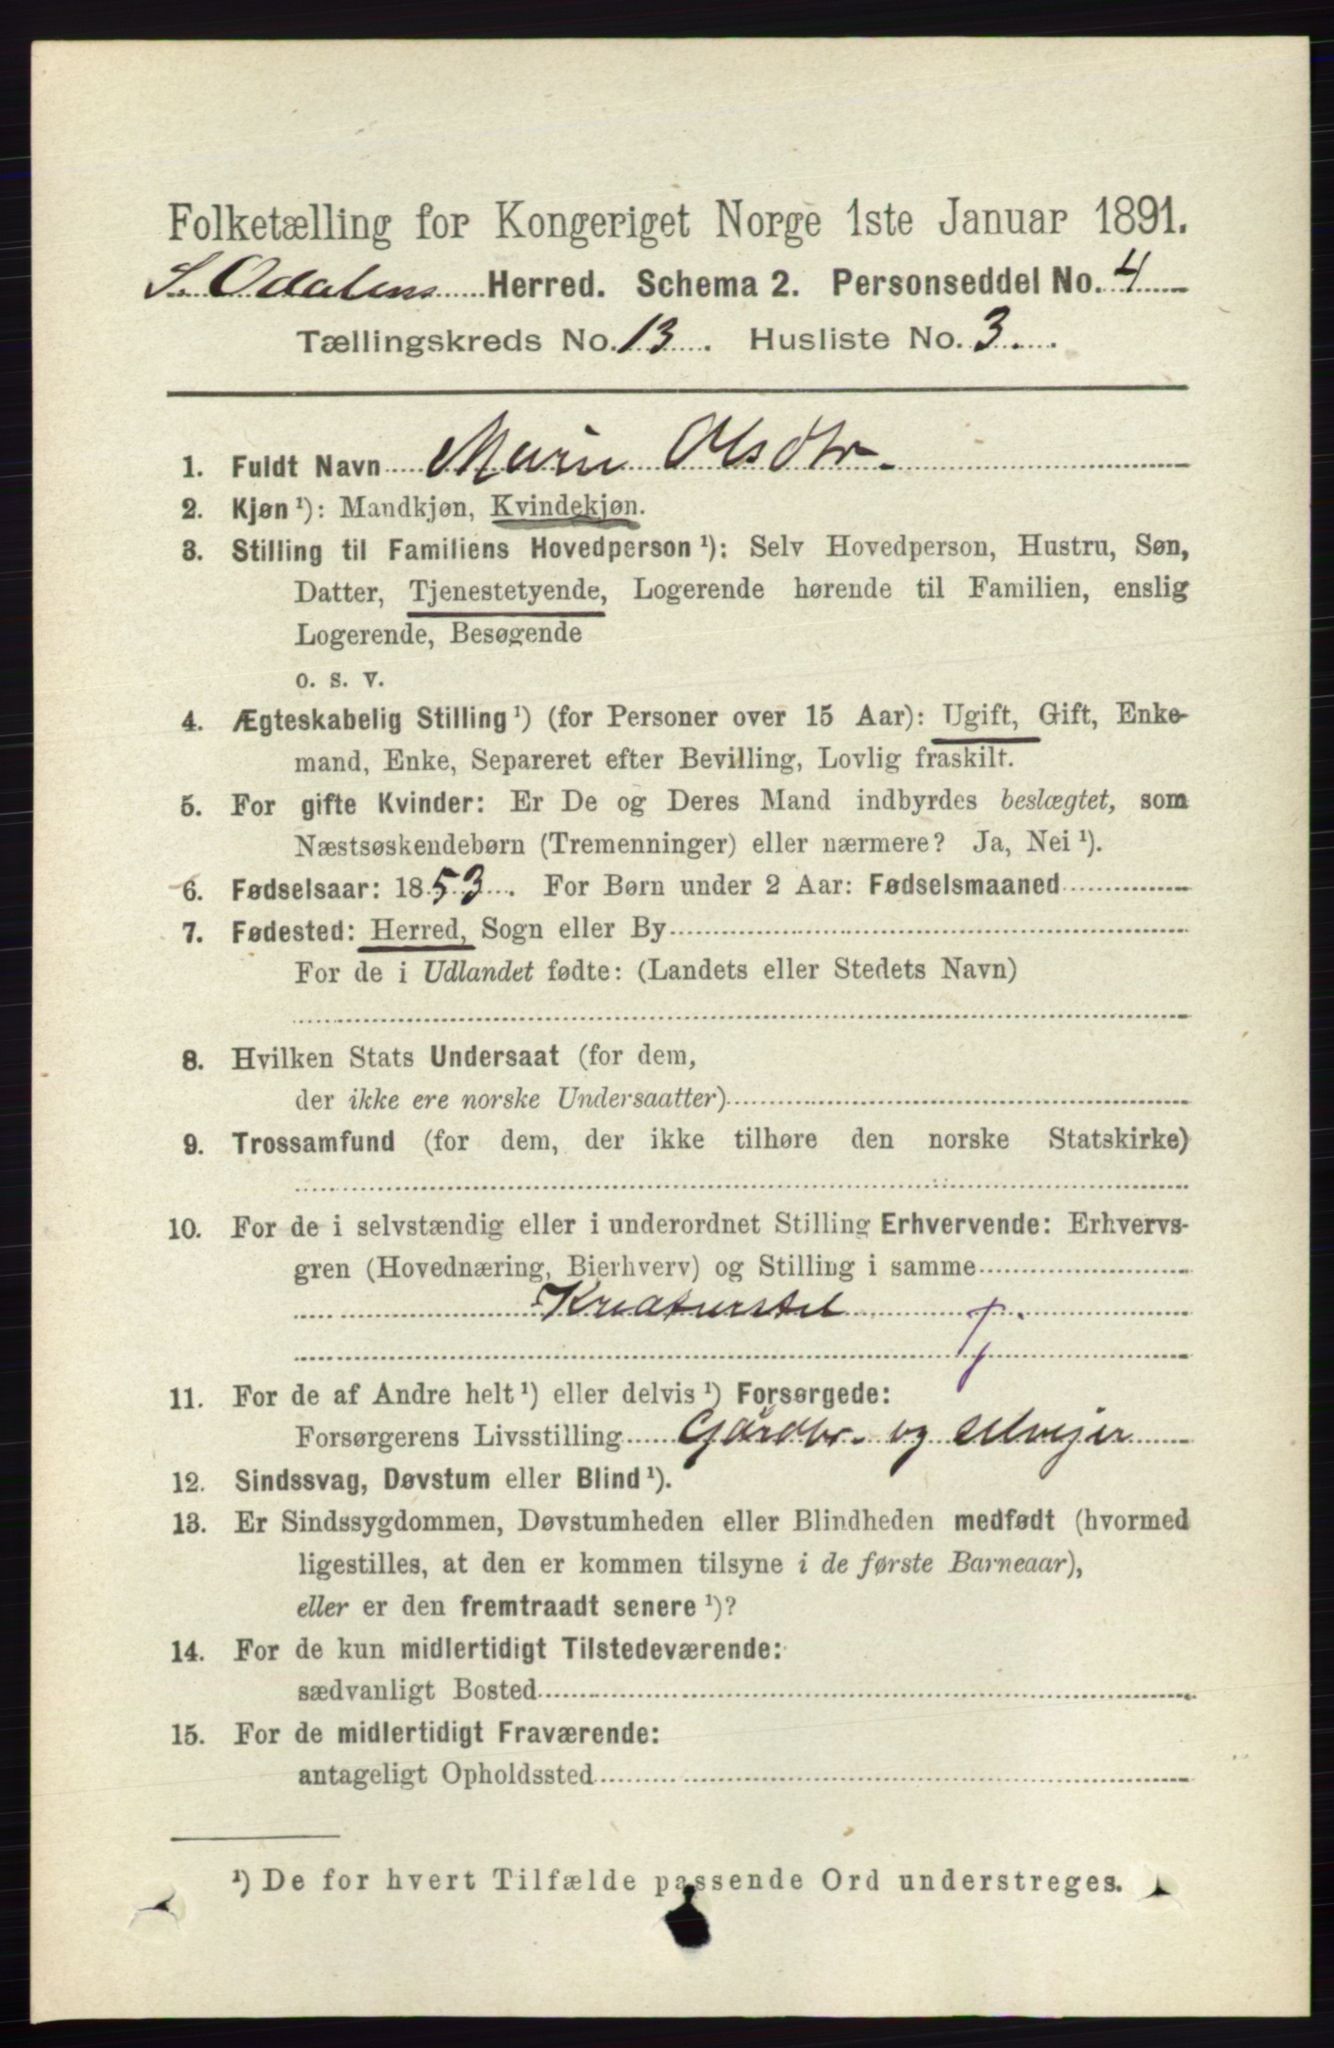 Folketælling for Kongeriget Norge 1ste Januar 1891.
S. Odalens Herred. Schema 2. Personseddel No. 4
Tællingskreds No. 13. Husliste No. 3.
1. Fuldt Navn Marie Olsdtr.
2. Kjøn ¹): Mandkjøn, Kvindekjøn.
3. Stilling til Familiens Hovedperson ¹): Selv Hovedperson, Hustru, Søn,
Datter, Tjenestetyende, Logerende hørende til Familien, enslig
Logerende, Besøgende
o. s. v.
4. Ægteskabelig Stilling ¹) (for Personer over 15 Aar): Ugift, Gift, Enke-
mand, Enke, Separeret efter Bevilling, Lovlig fraskilt.
5. For gifte Kvinder: Er De og Deres Mand indbyrdes beslægtet, som
Næstsøskendebørn (Tremenninger) eller nærmere? Ja, Nei ¹).
6. Fødselsaar: 1853. For Børn under 2 Aar: Fødselsmaaned
7. Fødested: Herred, Sogn eller By
For de i Udlandet fødte: (Landets eller Stedets Navn)
8. Hvilken Stats Undersaat (for dem,
der ikke ere norske Undersaatter)
9. Trossamfund (for dem, der ikke tilhøre den norske Statskirke)
10. For de i selvstændig eller i underordnet Stilling Erhvervende: Erhvervs-
gren (Hovednæring, Bierhverv) og Stilling i samme
Kreaturstel
11. For de af Andre helt ¹) eller delvis ¹) Forsørgede:
Forsørgerens Livsstilling Gårdbr. og selvejer
12. Sindssvag, Døvstum eller Blind ¹).
13. Er Sindssygdommen, Døvstumheden eller Blindheden medfødt (hvormed
ligestilles, at den er kommen tilsyne i de første Barneaar),
eller er den fremtraadt senere ¹)?
14. For de kun midlertidigt Tilstedeværende:
sædvanligt Bosted
15. For de midlertidigt Fraværende:
antageligt Opholdssted
¹) De for hvert Tilfælde passende Ord understreges.